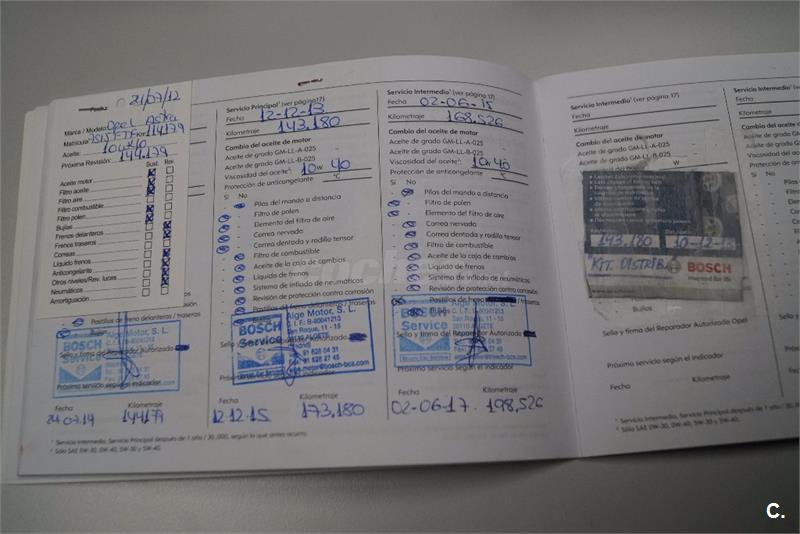 21/07/12
Marca / Modelo Opel Astra
Aceite 10W40
Próxima Revisión: 144.179
Sust. Rev.
Aceite motor
Filtro aceite
Filtro aire
Filtro combustible
Filtro polen
Bujías
Frenos delanteros
Frenos traseros
Correas
Líquido frenos
Anticongelante
Otros niveles/Rev. luces
Neumáticos
Amortiguación
Pastillas de freno delanteras / traseras
Sello y firma del Reparador Autorizado
Próximo servicio según el indicador
Fecha Kilometraje
21.07.14 144179
Servicio Principal¹ (ver página 17)
Fecha 12-12-13
Kilometraje 143.180
Cambio del aceite de motor
Aceite de grado GM-LL-A-025
Aceite de grado GM-LL-B-025
Viscosidad del aceite²: 10 W 40
Protección de anticongelante °C
Sí No
Pilas del mando a distancia
Filtro de polen
Elemento del filtro de aire
Correa nervada
Correa dentada y rodillo tensor
Filtro de combustible
Aceite de la caja de cambios
Líquido de frenos
Sistema de inflado de neumáticos
Revisión de protección contra corrosión
Pastillas de freno delanteras / traseras
BOSCH Service
Alge Motor, S. L.
C. I. F.: B-80041213
San Roque, 11 - 15
28110 ALGETE
(Madrid)
91 628 04 31
91 628 27 45
Sello y firma del Reparador Autorizado
Próximo servicio según el indicador
Fecha Kilometraje
12.12.15 173,180
Servicio Intermedio¹ (ver página 17)
Fecha 02-06-15
Kilometraje 168,526
Cambio del aceite de motor
Aceite de grado GM-LL-A-025
Aceite de grado GM-LL-B-025
Viscosidad del aceite²: 10 W 40
Protección de anticongelante °C
Sí No
Pilas del mando a distancia
Filtro de polen
Elemento del filtro de aire
Correa nervada
Correa dentada y rodillo tensor
Filtro de combustible
Aceite de la caja de cambios
Líquido de frenos
Sistema de inflado de neumáticos
Revisión de protección contra corrosión
Pastillas de freno
Bujías
BOSCH Service
Alge Motor, S. L.
Sello y firma del Reparador Autorizado
Próximo servicio según el indicador
Fecha Kilometraje
02-06-17 198,526
¹ Servicio Intermedio, Servicio Principal después de 1 año / 30.000, según lo que antes ocurra.
² Sólo SAE 0W-30, 0W-40, 5W-30 y 5W-40.
Servicio Intermedio¹ (ver página 17)
Fecha
Kilometraje
Cambio del aceite de motor
Aceite de grado GM-LL-A-025
Aceite de grado GM-LL-B-025
Viscosidad del aceite²: W
143,180 10-12-13
KIT. DISTRIB. BOSCH
Bujías
Sello y firma del Reparador Autorizado Opel
Próximo servicio según el indicador
Fecha Kilometraje
¹ Servicio Intermedio, Servicio Principal después de 1 año / 30
² Sólo SAE 0W-30, 0W-40, 5W-30 y 5W-40.
Servicio
Fecha
Kilometraje
Cambio del
Aceite de
Aceite de
Viscosidad
Protección
C.